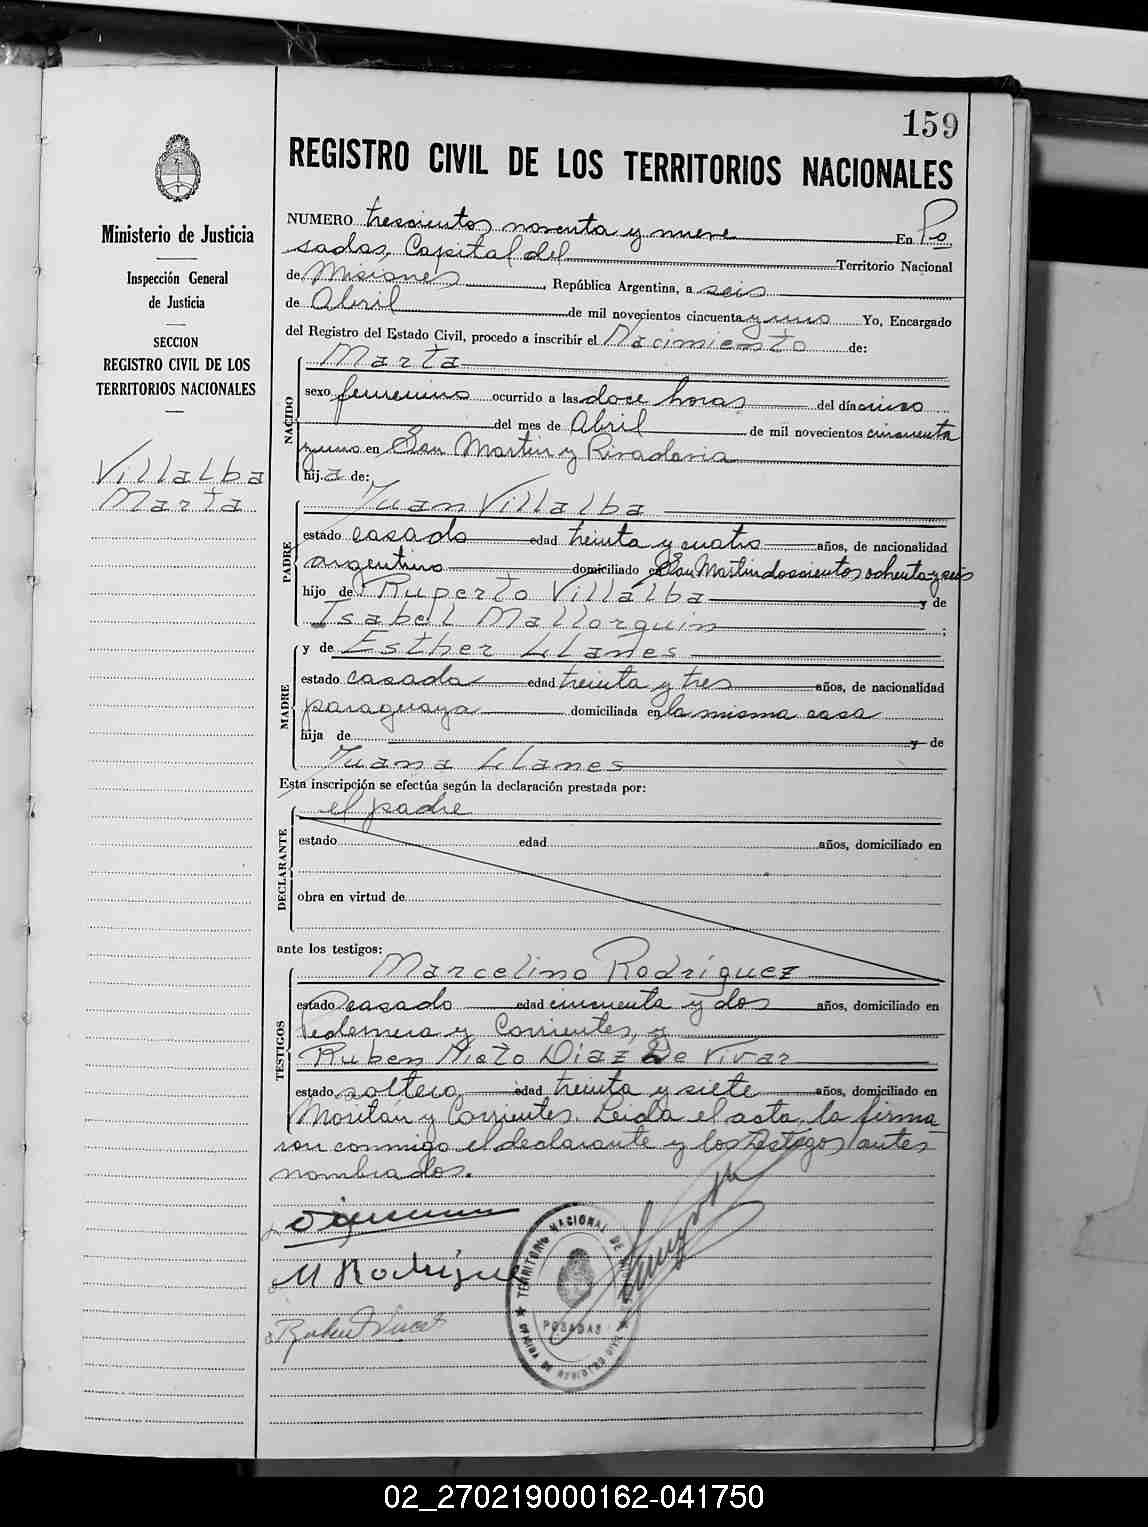 159
REGISTRO CIVIL DE LOS TERRITORIOS NACIONALES
Ministerio de Justicia
Inspección General
de Justicia
SECCION
REGISTRO CIVIL DE LOS
TERRITORIOS NACIONALES
Villalba
Marta
NUMERO trescientos noventa y nueve En Po
sadas, Capital del Territorio Nacional
de Misiones, República Argentina, a seis
de Abril de mil novecientos cincuenta y uno Yo, Encargado
del Registro del Estado Civil, procedo a inscribir el Nacimiento de:
NACIDO
Marta
sexo femenino ocurrido a las doce horas del día uno
del mes de Abril de mil novecientos cincuenta
y uno en San Martin y Rivadavia
hij a de:
PADRE
Juan Villalba
estado casado edad treinta y cuatro años, de nacionalidad
argentino domiciliado en San Martin doscientos ochenta y seis
hijo de Ruperto Villalba y de
Isabel Mallorquin ;
MADRE
y de Esther Llanes
estado casada edad treinta y tres años, de nacionalidad
paraguaya domiciliada en la misma casa
hija de y de
Juana Llanes
Esta inscripción se efectúa según la declaración prestada por:
DECLARANTE
el padre
estado edad años, domiciliado en
obra en virtud de
ante los testigos:
TESTIGOS
Marcelino Rodríguez
estado casado edad cincuenta y dos años, domiciliado en
y Corrientes, y
Ruben Nieto Diaz De Vivar
estado soltero edad treinta y siete años, domiciliado en
y Corrientes. Leida el acta, la firma
ron conmigo el declarante y los testigos antes
nombrados.
M Rodrígue
TERRITORIO NACIONAL DE
POSADAS
02_270219000162-041750